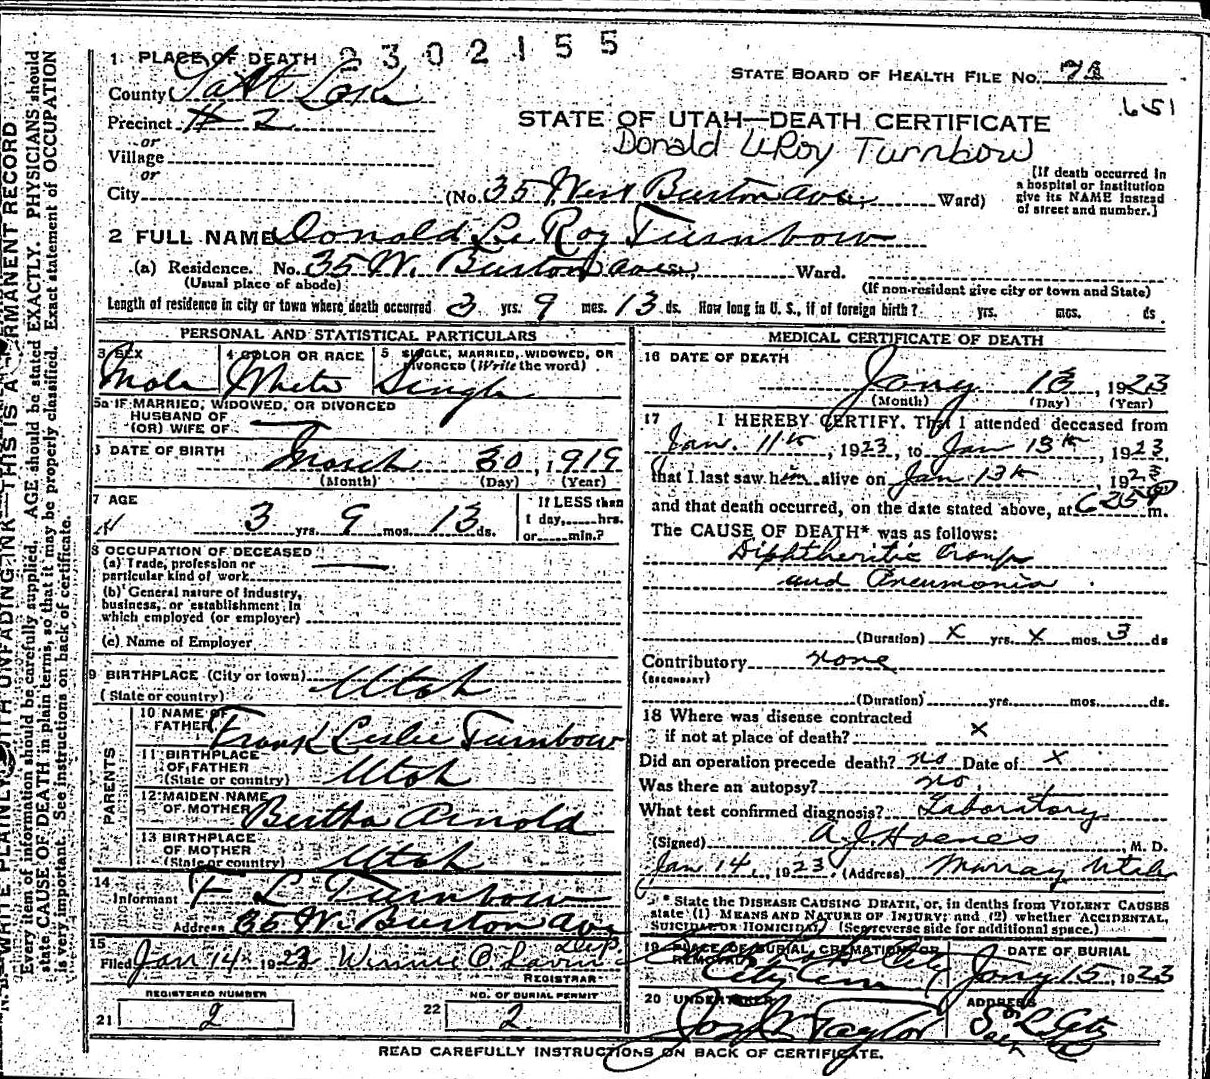 2302155
1 PLACE OF DEATH
STATE BOARD OF HEALTH FILE No.
County Salt Lake
651
Precinct # 2
STATE OF UTAH—DEATH CERTIFICATE
or
Village
Donald LeRoy Turnbow
or
City (No. 35 West Burton Ave. Ward)
[If death occurred in
a hospital or institution
give its NAME instead
of street and number.]
2 FULL NAME Donald Le Roy Turnbow
(a) Residence. No. 35 W. Burton Ave St., Ward.
(Usual place of abode) (If non-resident give city or town and State)
Length of residence in city or town where death occurred 3 yrs. 9 mos. 13 ds. How long in U. S., if of foreign birth? yrs. mos. ds.
PERSONAL AND STATISTICAL PARTICULARS
3 SEX 4 COLOR OR RACE 5 SINGLE, MARRIED, WIDOWED, OR
DIVORCED (Write the word)
Male White Single
5a IF MARRIED, WIDOWED, OR DIVORCED
HUSBAND OF
(OR) WIFE OF
DATE OF BIRTH March 30, 1919
(Month) (Day) (Year)
7 AGE 3 yrs. 9 mos. 13 ds.
If LESS than
1 day, hrs.
or min.?
8 OCCUPATION OF DECEASED
(a) Trade, profession or
particular kind of work
(b) General nature of industry,
business, or establishment in
which employed (or employer)
(c) Name of Employer
9 BIRTHPLACE (City or town)
(State or country) Utah
PARENTS
10 NAME OF
FATHER Frank Leslie Turnbow
11 BIRTHPLACE
OF FATHER
(State or country) Utah
12 MAIDEN NAME
OF MOTHER Bertha Arnold
13 BIRTHPLACE
OF MOTHER
(State or country) Utah
14
Informant F L Turnbow
Address 35 W. Burton Ave
15
Filed Jan 14 1923 Winnie
REGISTRAR
REGISTERED NUMBER
21 2
NO. OF BURIAL PERMIT
22 2
MEDICAL CERTIFICATE OF DEATH
16 DATE OF DEATH
Jany 13, 1923
(Month) (Day) (Year)
17 I HEREBY CERTIFY, That I attended deceased from
Jan. 11th, 1923, to Jan 13th, 1923,
that I last saw him alive on Jan 13th, 1923
and that death occurred, on the date stated above, at m.
The CAUSE OF DEATH* was as follows:
Diphtheritic Croup
and Pneumonia
(Duration) x yrs. x mos. 3 ds
Contributory none
(SECONDARY)
(Duration) yrs. mos. ds.
18 Where was disease contracted
if not at place of death? x
Did an operation precede death? no Date of x
Was there an autopsy? no
What test confirmed diagnosis? Laboratory
(Signed) A J Hoenes, M. D.
Jan 14, 1923, (Address) Murray Utah
* State the DISEASE CAUSING DEATH, or, in deaths from VIOLENT CAUSES
state (1) MEANS AND NATURE OF INJURY; and (2) whether ACCIDENTAL,
SUICIDAL OR HOMICIDAL) (See reverse side for additional space.)
19 PLACE OF BURIAL, CREMATION OR
REMOVAL
City Cem
DATE OF BURIAL
Jany 15, 1923
20 UNDERTAKER
Taylor
ADDRESS
READ CAREFULLY INSTRUCTIONS ON BACK OF CERTIFICATE.
Every item of information should be carefully supplied. AGE should be stated EXACTLY. PHYSICIANS should
state CAUSE OF DEATH in plain terms, so that it may be properly classified. Exact statement of OCCUPATION
is very important. See instructions on back of certificate.
WRITE PLAINLY WITH UNFADING INK—THIS IS A PERMANENT RECORD